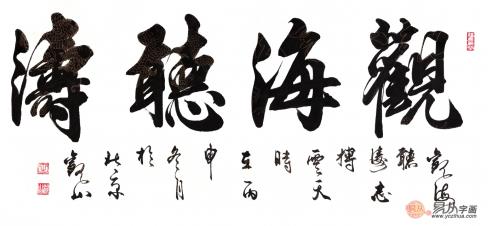 觀海聽濤
觀海
聽濤志
搏
雲天
時
在丙
申
冬月
於
北京
觀山
易从字画
www.yczihua.com